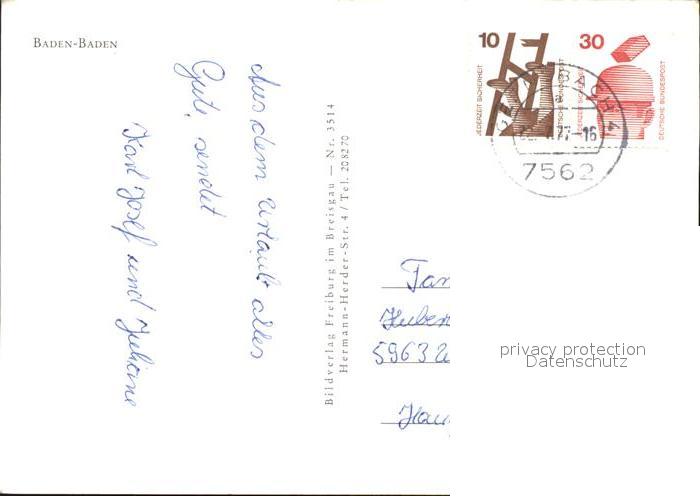 BADEN-BADEN
Aus dem Urlaub alles
Gute, sendet
Karl Josef und Juliane
Bildverlag Freiburg im Breisgau — Nr. 3514
Hermann-Herder-Str. 4 / Tel. 208270
10
JEDERZEIT SICHERHEIT
DEUTSCHE BUNDESPOST
30
JEDERZEIT SICHERHEIT
DEUTSCHE BUNDESPOST
7562
Fam
Huber
5963
privacy protection
Datenschutz